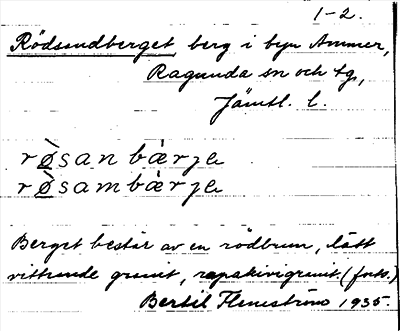 1-2.
Rödsundberget, berg i byn Ammer,
Ragunda sn och tg,
Jämtl. l.
rø̀sanbærje
rø̀sambærje
Berget består av en rödbrun, lätt
vittrande granit, rapakivigranit. (forts.)
Bertil Flemström 1935.